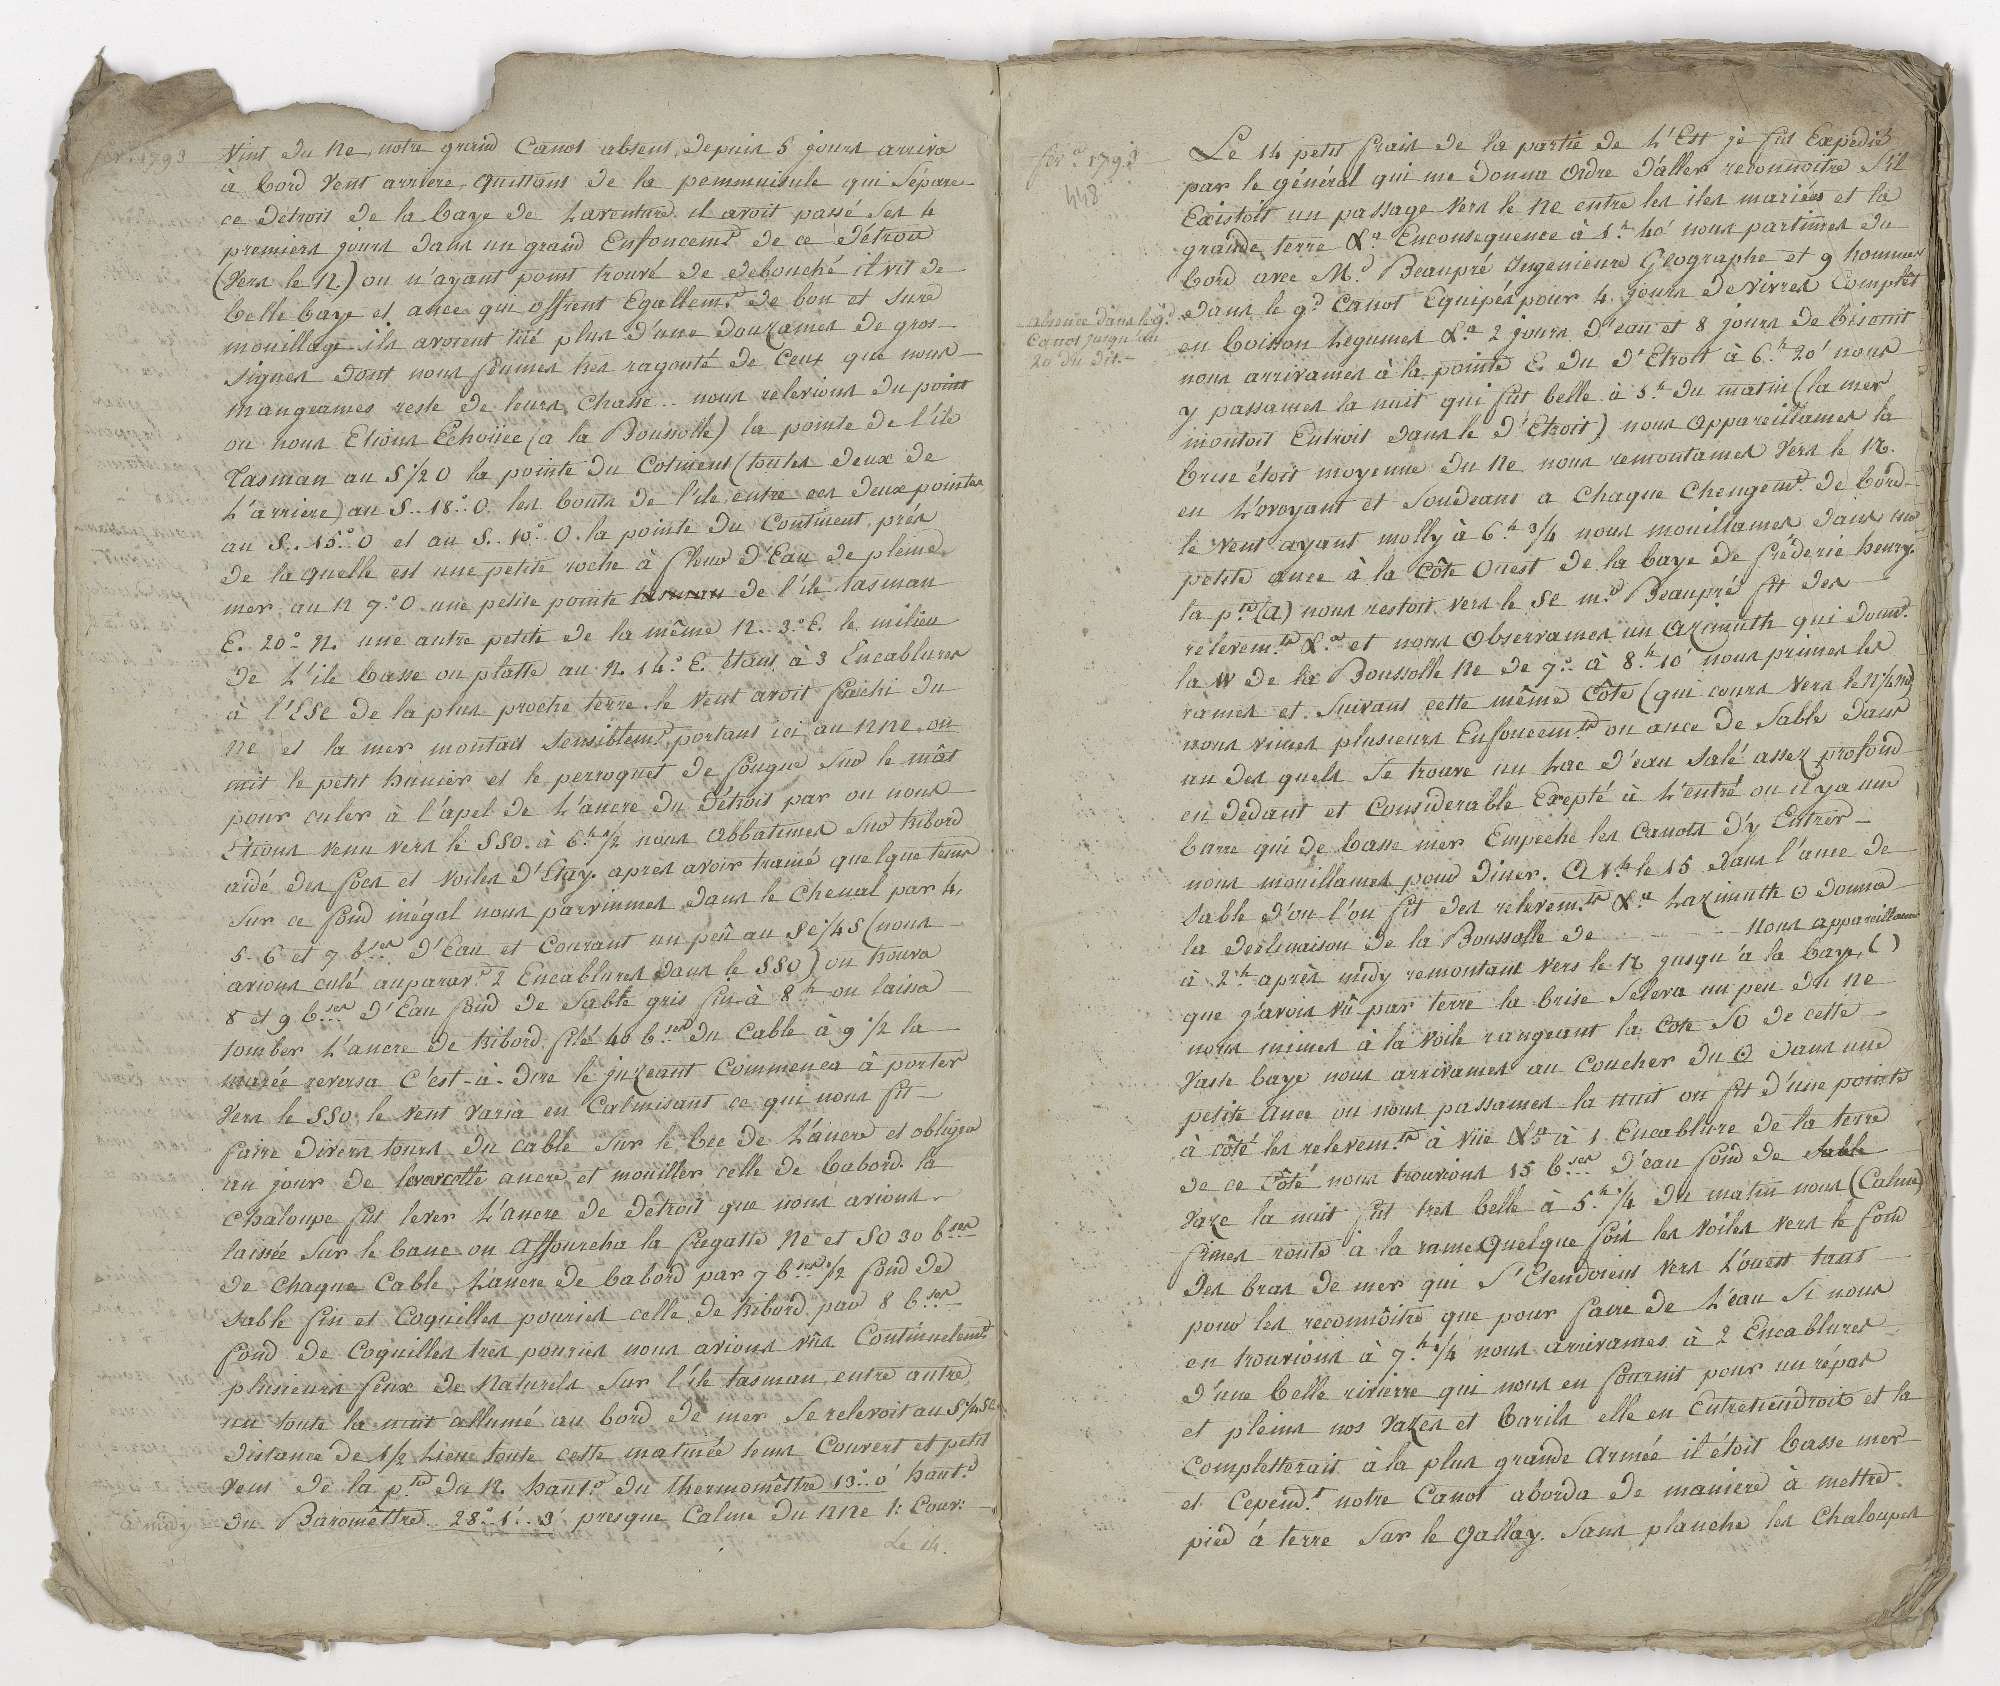 fév.r 1793
vint du ne, notre grand Canot absent depuis 5 jours arriva
à bord vent arriere, quittant de la pemmnisule qui Sépare
ce détroit de la baye de Laventure. il avoit passé Ses 4
premiers jours dans un grand Enfoncem.t de ce Détroit
(vers le N.) ou n'ayant point trouvé de debouché il vit de
belle baye et ance qui offrent Egallem.t de bon et sure
mouillage ils avoient tué plus d'une douzaines de gros
Signes dont nous fumes tres ragouté de Ceux que nous
mangeames reste de leurs Chasse.. nous relevions du point
ou nous Etions Echoüée (a la Boussolle) la pointe de l'ile
Tasman au S 1/2 O la pointe du Cotinent (toutes deux de
L'arriere) au S.. 18.° O. les bouts de l'ile entre ces deux pointes
au S.. 15.° O et au S.. 10.° O. la pointe du Continent, prés
de laquelle est une petite roche à fleur d'Eau de pleine
mer, au N 7.° O. une petite pointe de l'ile tasman
E. 20.° N. une autre petite de la même N.. 3.° E. le milieu
de L'ile basse ou platte au N. 14.° E. étant à 3 Encablures
à l'ESE de la plus proche terre. le vent avoit fraichi du
ne et la mer montait sensiblem.t portant ici au nne. on
mit le petit hunier et le perroquet de fougue sur le mât
pour culer à l'apel de L'ancre du détroit par ou nous
étions venu vers le SSO. à 6.h 1/2 nous abbatimes sur tribord
aidé des focs et voiles d'Etay. apres avoir trainé quelque tems
sur ce fond inégal nous parvinmes dans le Chenal par 4.
5. 6 et 7 b.ses d'Eau et Courant un peu au Se 1/4 S (nous
avions culé auparav.t 2 Encablures dans le SSO) on trouva
8 et 9 b.ses d'Eau fond de Sable gris fin à 8.h on laissa
tomber L'ancre de tribord filé 40 b.ses du Cable à 9 1/2 la
marée reversa c'est-à-dire le juzeant Commenca à porter
vers le SSO. le vent varia en Calmisant ce qui nous fit
faire divers tours du cable sur le bec de L'ancre et obligea
au jour de lever cette ancre et mouiller celle de babord. la
Chaloupe fut lever L'ancre de détroit que nous avions
laissée sur le banc. on affourcha la frégatte ne et SO 30 b.ses
de chaque Cable, L'ancre de babord par 7 b.ses 1/2 fond de
sable fin et Coquilles pouries celle de tribord par 8 b.ses
fond de Coquilles très pouries nous avions vûs Continuelem.t
plusieurs feux de Naturels Sur l'ile tasman, entre autre,
un toute la nuit allumé au bord de mer Se relevoit au S 1/4 SE
distance de 1/2 Lieue toute cette matinée tems Couvert et petit
vent de la p.tie du N. haut.r du thermomêttre 13.° 0' haut.r
du Barométtre 28.° 1.' 3' presque Calme du nne 1: Cour:
Le 14.
fév.r 1793
448
absence dans le g.d
Canot jusqu'au
20 du dit.
Le 14 petit frais de la partie de L'Est je fus Expédié
par le général qui me donna Ordre d'aller reconnoitre s'il
Existoit un passage vers le ne entre les iles mariées et la
grande terre &.a Enconsequence à 1.h 40' nous partimes du
bord avec M.r Beaupré Ingenieure Géographe et 9 hommes
dans le g.d Canot Equipés pour 4. jours de vivres Complets
en boisson Legumes &.a 2 jours d'eau et 8 jours de biscuit
nous arrivames à la pointe E. du d'Etroit à 6.h 20' nous
y passames la nuit qui fut belle à 5.h du matin (la mer
montoit Entroit dans le d'Etroit) nous Appareillames la
brise étoit moyenne du ne nous remontames vers le N.
en L'ovoyant et Soudeant a Chaque Changem.t de bord
le vent ayant molly à 6.h 3/4 nous mouillames dans une
petite ance à la Côte Ouest de la baye de fréderic henry.
la p.te (a) nous restoit vers le Se m.r Beaupré fit des
relevem.ts &.a et nous Observames un azimuth qui donn.t
la W de la Boussolle ne de 7.° à 8.h 10' nous primes les
rames et Suivant cette même Côte (qui cours vers le N 1/4 NO)
nous vimes plusieurs Enfoncem.ts ou ance de Sable dans
un des quels Se trouve un Lac d'eau Salé assez profond
en dedant et Considerable Exepté à L'entré ou il ya une
barre qui de basse mer Empeche les Canots d'y Entrer
nous mouillames pour diner. A 1.h le 15 dans l'ance de
sable d'ou l'on fit des relevem.ts &.a Lazimuth O donna
la declinaison de la Boussolle de nous appareillames
à 2.h après midy remontant vers le N jusqu'à la baye, ( )
que j'avois vû par terre la brise Seleva un peu du ne
nous mimes à la voile rangeant la Cote SO de cette
vaste baye nous arrivames au Coucher du O dans une
petite Ance ou nous passames la nuit on fit d'une pointe
à côté les relevem.ts à vüe &.a à 1 Encablure de la terre
de ce côté nous trouvions 15 b.ses d'eau fond de
vaze la nuit fut tres belle à 5.h 1/4 du matin nous (Calme)
fimes route à la rame quelque fois les voiles vers le fond
des bras de mer qui S'Etendoient vers L'ouest tant
pour les reconnôitre que pour faire de L'eau Si nous
en trouvions à 7.h 1/4 nous arrivames à 2 Encablures
d'une belle rivierre qui nous en fournit pour un répas
et pleins nos vazes et barils elle en Entretiendroit et la
Completterait à la plus grande Armée il étoit basse mer
et Cepend.t notre Canot aborda de maniere à mettre
pied à terre Sur le gallay. Sans planche les Chaloupes